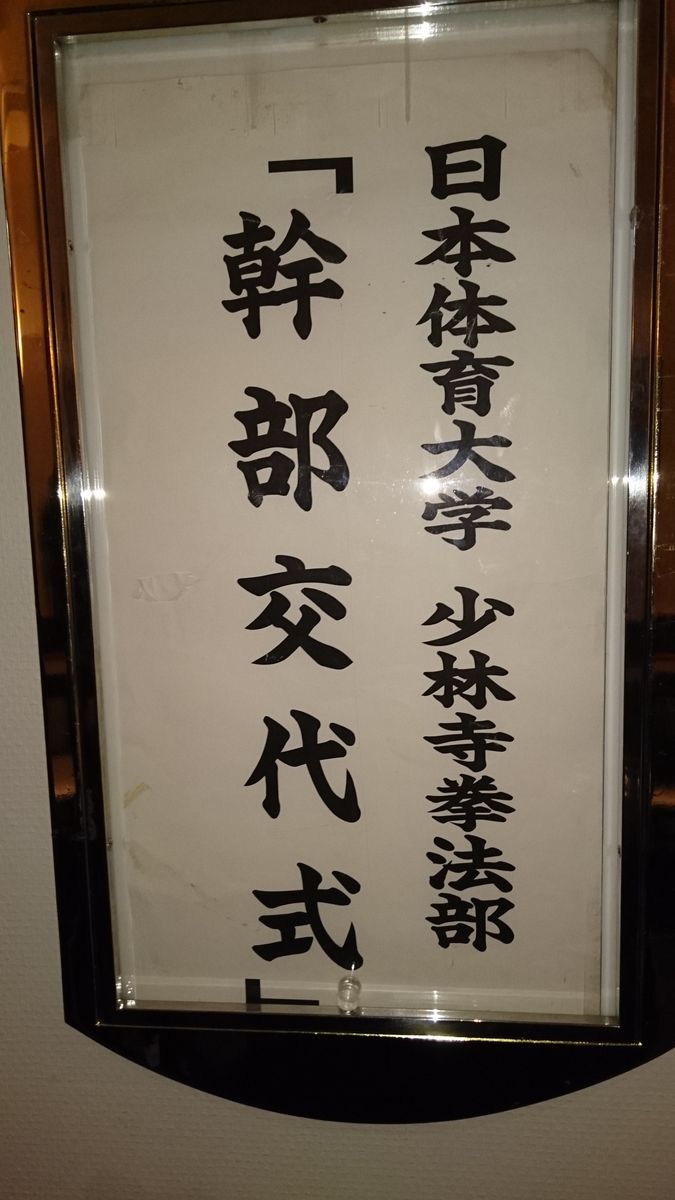 日本体育大学 少林寺拳法部
「幹部交代式」